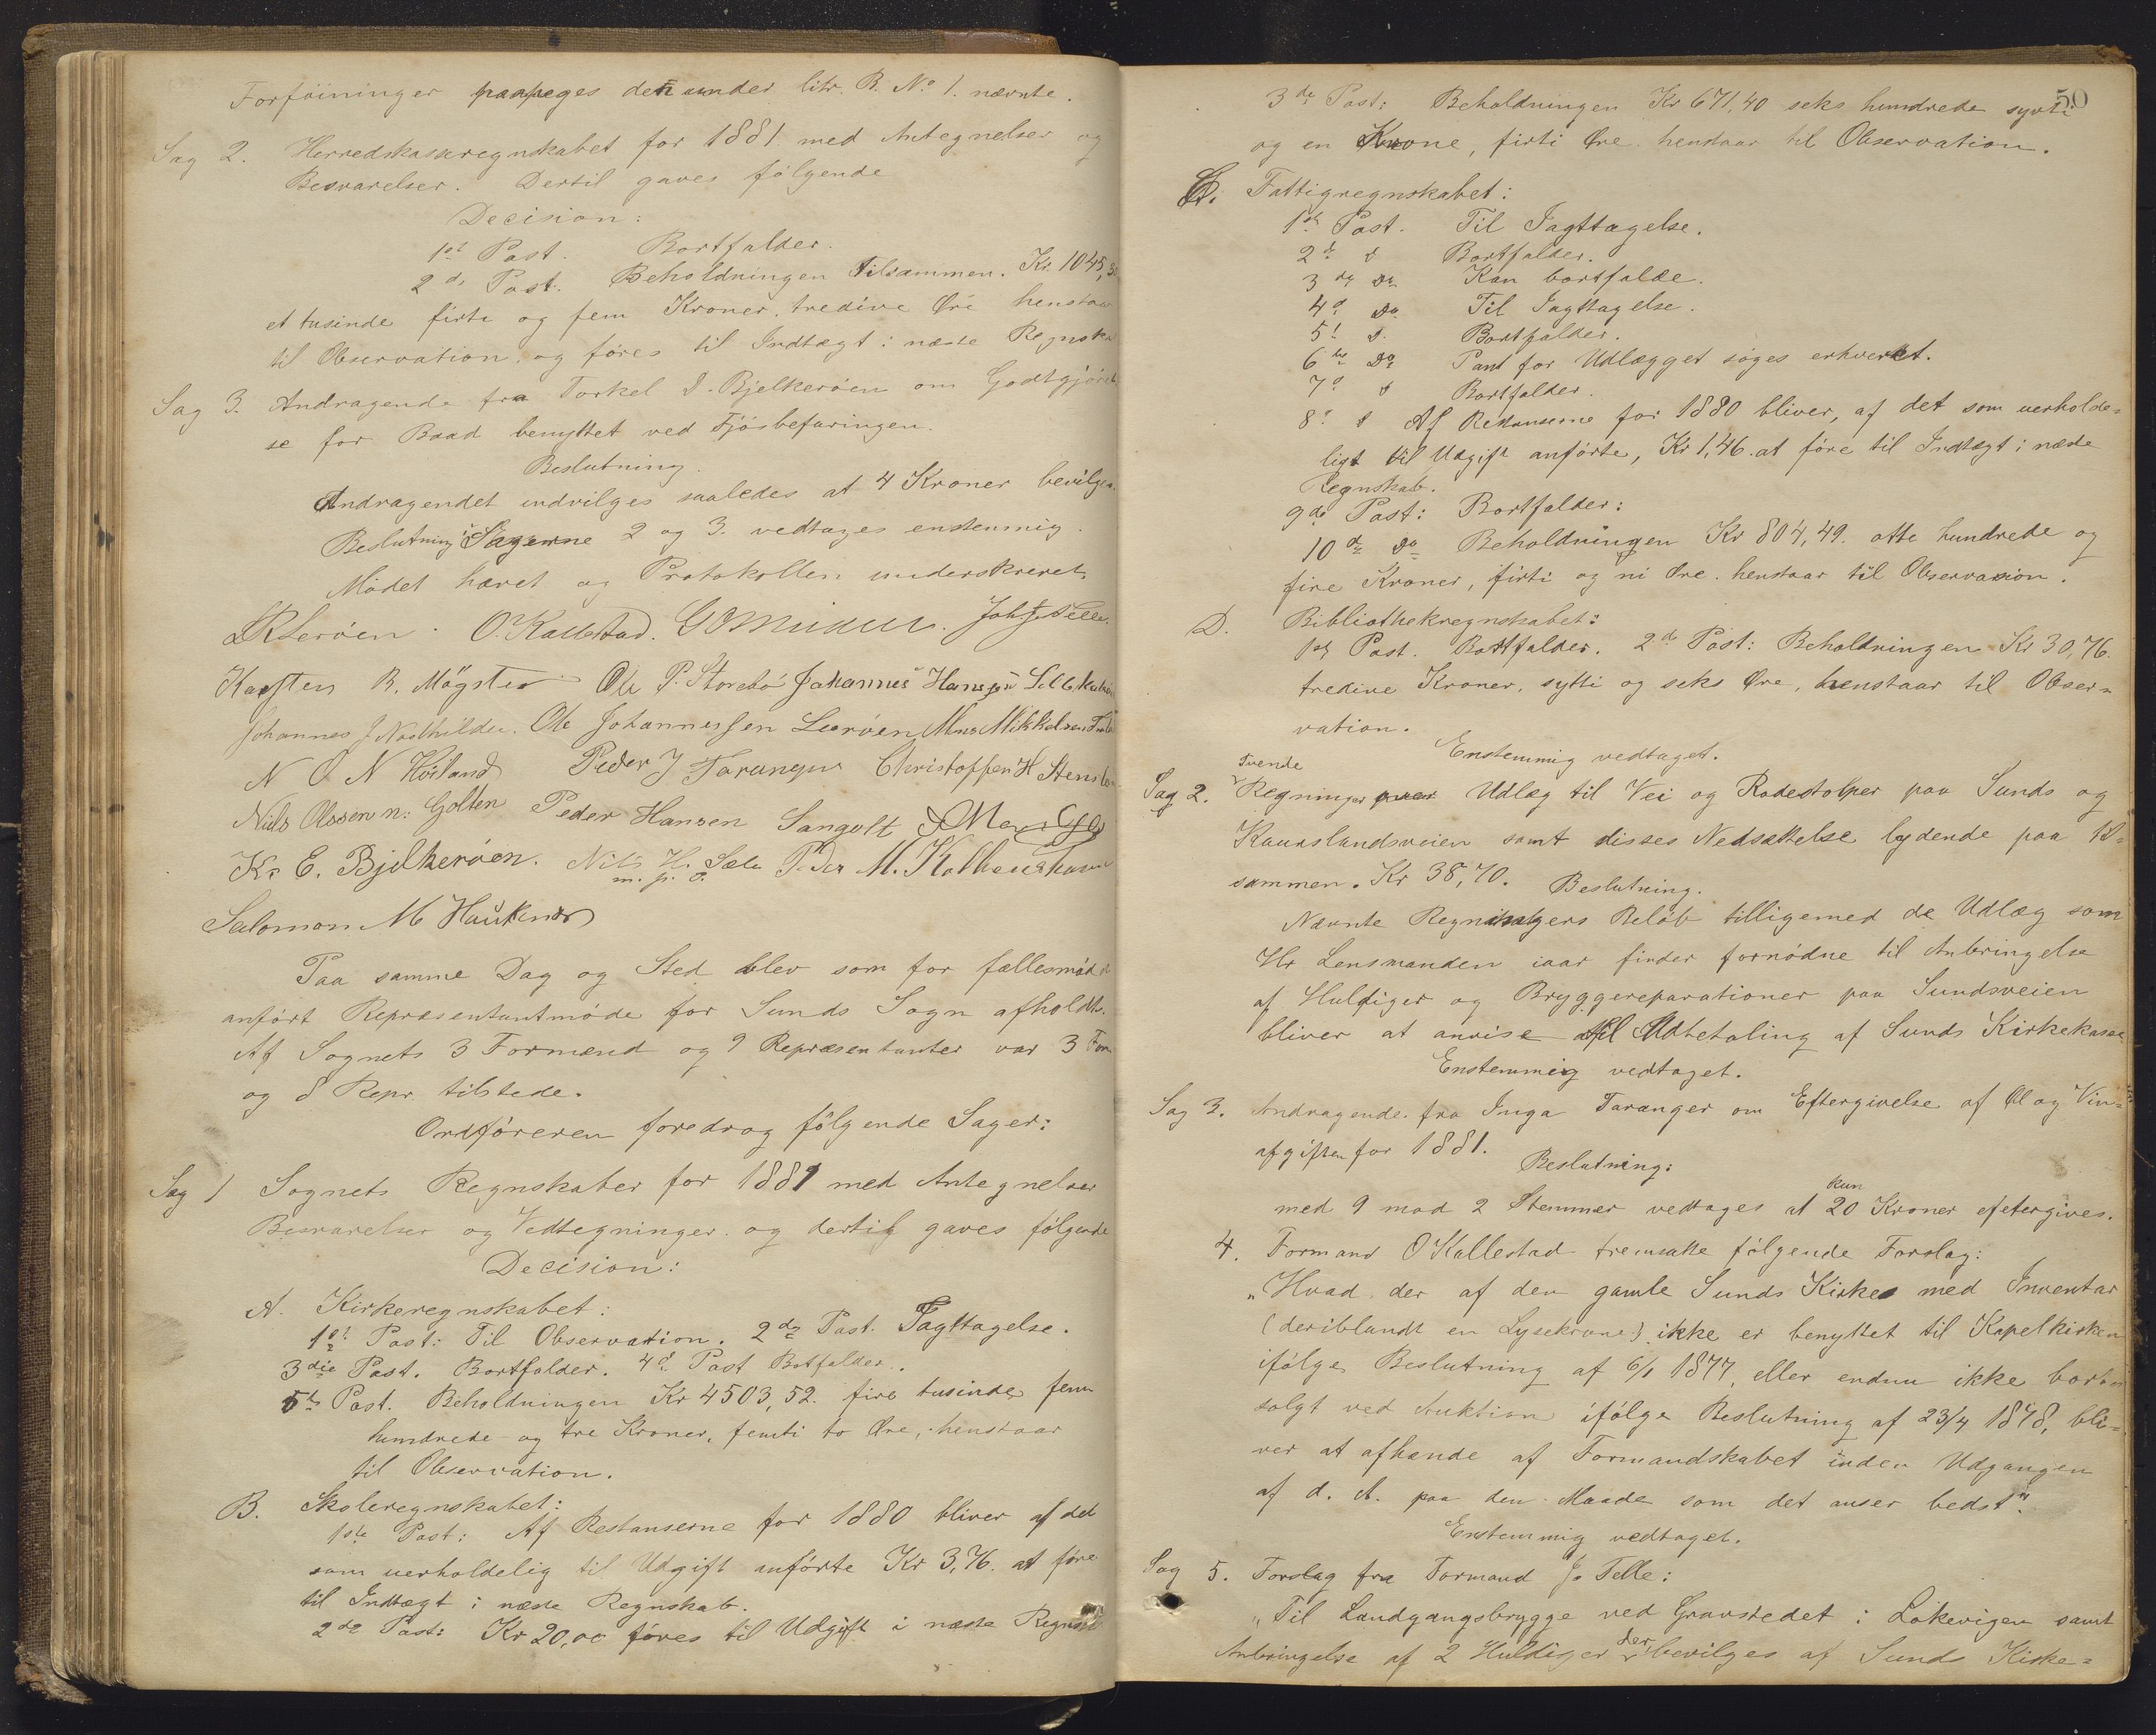 Forföininger paapeges den under litr. B. No 1. nævnte.
Sag 2. Herredskasseregnskabet for 1881 med Antegnelser og
Besvarelser. Dertil gaves fölgende
Decision:
1st Post. Bortfalder.
2de Post. Beholdningen tilsammen. Kr. 1045,30
et tusinde firti og fem Kroner, tredive Øre henstaar
til Observation, og föres til Indtægt i næste Regnska
Sag 3. Andragende fra Torkel D. Bjelkeröen om Godtgjörel
se for Baad benyttet ved Fjösbefaringen.
Beslutning.
Andragendet indvilges saaledes at 4 Kroner bevilges.
Beslutning i Sagerne 2 og 3. vedtages enstemmig.
Mödet hævet og Protokollen underskrevet.
LRLeröen. O. Kallestad. Joh. J. Telle.
Karsten R. Mögster Ole P. Storebö Johannes Hansen
Johannes J Nedhilder. Ole Johannessen Leeröen Mons Mikkelsen
N O N Höiland Peder J Taranger Christoffer H Stensl
Niels Olssen n: Golten Peder Hansen Sangolt
Kr E. Bjelkeröen. Nils H. Sæle Peder M. Kolbeins
m. p. P.
Salomon M Haukenæs
Paa samme Dag og Sted blev som for fællesmöde
anfört Repræsentantmöde for Sunds Sogn afholdt.
Af Sognets 3 Formænd og 9 Repræsentanter var 3 For
og 8 Repr. tilstede.
Ordföreren foredrog fölgende Sager:
Sag 1 Sognets Regnskaber for 1881 med Antegnelser
Besvarelser og Vedtegninger og dertil gaves fölgende
Decision:
A. Kirkeregnskabet:
1st Post: Til Observation. 2de Post. Iagttagelse.
3die Post. Bortfalder. 4d Post Botfalder.
5te Post. Beholdningen Kr 4503,52. fire tusinde fem
hundrede og tre Kroner, femti to Øre, henstaar
til Observation.
B. Skoleregnskabet:
1ste Post: Af Restanserne for 1880 bliver af det
som uerholdelig til Udgift anförte Kr 3,76. at före
til Indtægt i næste Regnskab.
2de Post: Kr 20,00 föres til Udgift i næste Regnsk
50
3de Post: Beholdningen Kr 671,40 seks hundrede sytti
og en Krone, firti Øre henstaar til Observation.
C. Fattigregnskabet:
1st Post. Til Iagttagelse.
2d d Bortfalder.
3de Do Kan bortfalde.
4d Do Til Iagttagelse.
5t d. Bortfalder.
6te Do Pant for Udlægget söges erhvervet.
7d d Bortfalder.
8d d Af Restanserne for 1880 bliver, af det som uerholde=
ligt til Udgift anförte, Kr 1,46. at före til Indtægt i næste
Regnskab.
9de Post: Bortfalder:
10de Do Beholdningen Kr 804,49. otte hundrede og
fire Kroner, firti og ni Øre. henstaar til Observasion.
D. Bibliothekregnskabet:
1st Post. Bortfalder. 2de Post: Beholdningen Kr 30,76.
tredive Kroner, sytti og seks Øre, henstaar til Obser=
vation.
Enstemmig vedtaget.
Tvende
Sag 2. Regninger Udlæg til Vei og Rodestolper paa Sunds og
Kaurslandsveien samt disses Nedsættelse lydende paa til=
sammen. Kr 38,70. Beslutning.
Nævnte Regningers Belöb tilligemed de Udlæg som
Hr Lensmanden iaar finder fornödne til Anbringelse
af Huldiger og Bryggereparationer paa Sundsveien
bliver at anvise til Udbetaling af Sunds Kirkekasse
Enstemmig vedtaget.
Sag 3. Andragende fra Inga Taranger om Eftergivelse af Øl og Vin=
afgiften for 1881. Beslutning:
kun
med 9 mod 2 Stemmer vedtages at 20 Kroner efetergives.
4. Formand O Kallestad fremsatte fölgende Forslag:
"Hvad der af den gamle Sunds Kirke med Inventar
(deriblandt en Lysekrone) ikke er benyttet til Kapelkirken
ifölge Beslutning af 6/1 1877, eller endnu ikke bort=
solgt ved Auktion ifölge Beslutning af 23/4 1878, bli=
ver at afhænde af Formandskabet inden Udgangen
af d. A. paa den Maade som det anser bedst".
Enstemmig vedtaget.
Sag 5. Forslag fra Formand J. Telle:
"Til Landgangsbrygge ved Gravstedet i Lökevigen samt
Anbringelse af 2 Huldiger der, bevilges af Sunds Kirke=